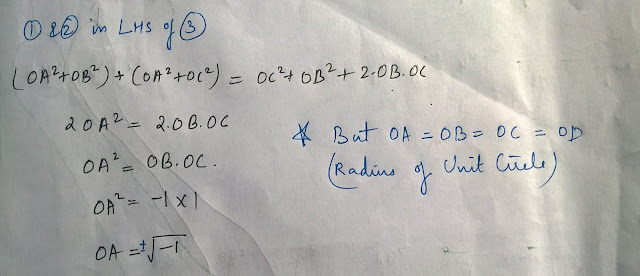 ① & ② in LHS of ③
(OA²+OB²) + (OA²+OC²) = OC²+ OB²+ 2·OB.OC
2OA² = 2.OB.OC
OA² = OB.OC.
OA² = -1 x 1
OA = ±√-1
* But OA = OB = OC = OD
(Radius of Unit Circle)